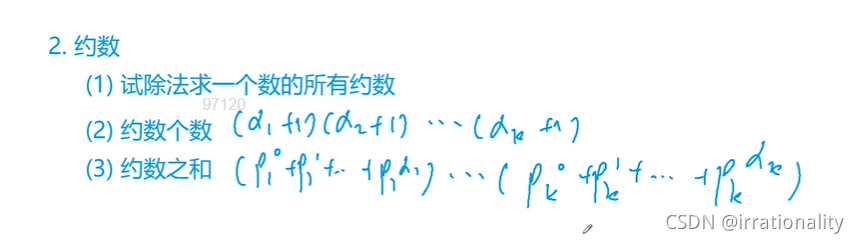 2. 约数
(1) 试除法求一个数的所有约数
97120
(2) 约数个数 (α₁+1)(α₂+1) ··· (αₖ+1)
(3) 约数之和 (p₁⁰+p₁¹+··+p₁^α₁) ··· (pₖ⁰+pₖ¹+···+pₖ^αₖ)
CSDN @irrationality